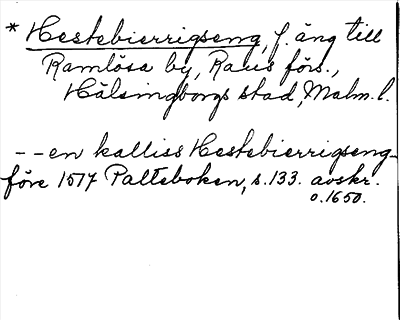 * Hestebierrigseng, f. äng till
Ramlösa by, Raus förs.,
Hälsingborgs stad, Malm. l.
- - en kalliss Hestebierrigseng -
före 1517 Palteboken, s. 133. avskr.
o. 1650.